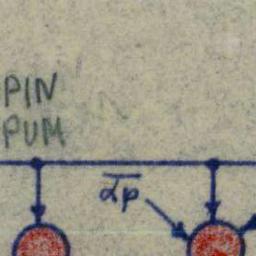 PIN
PUM
αp̅